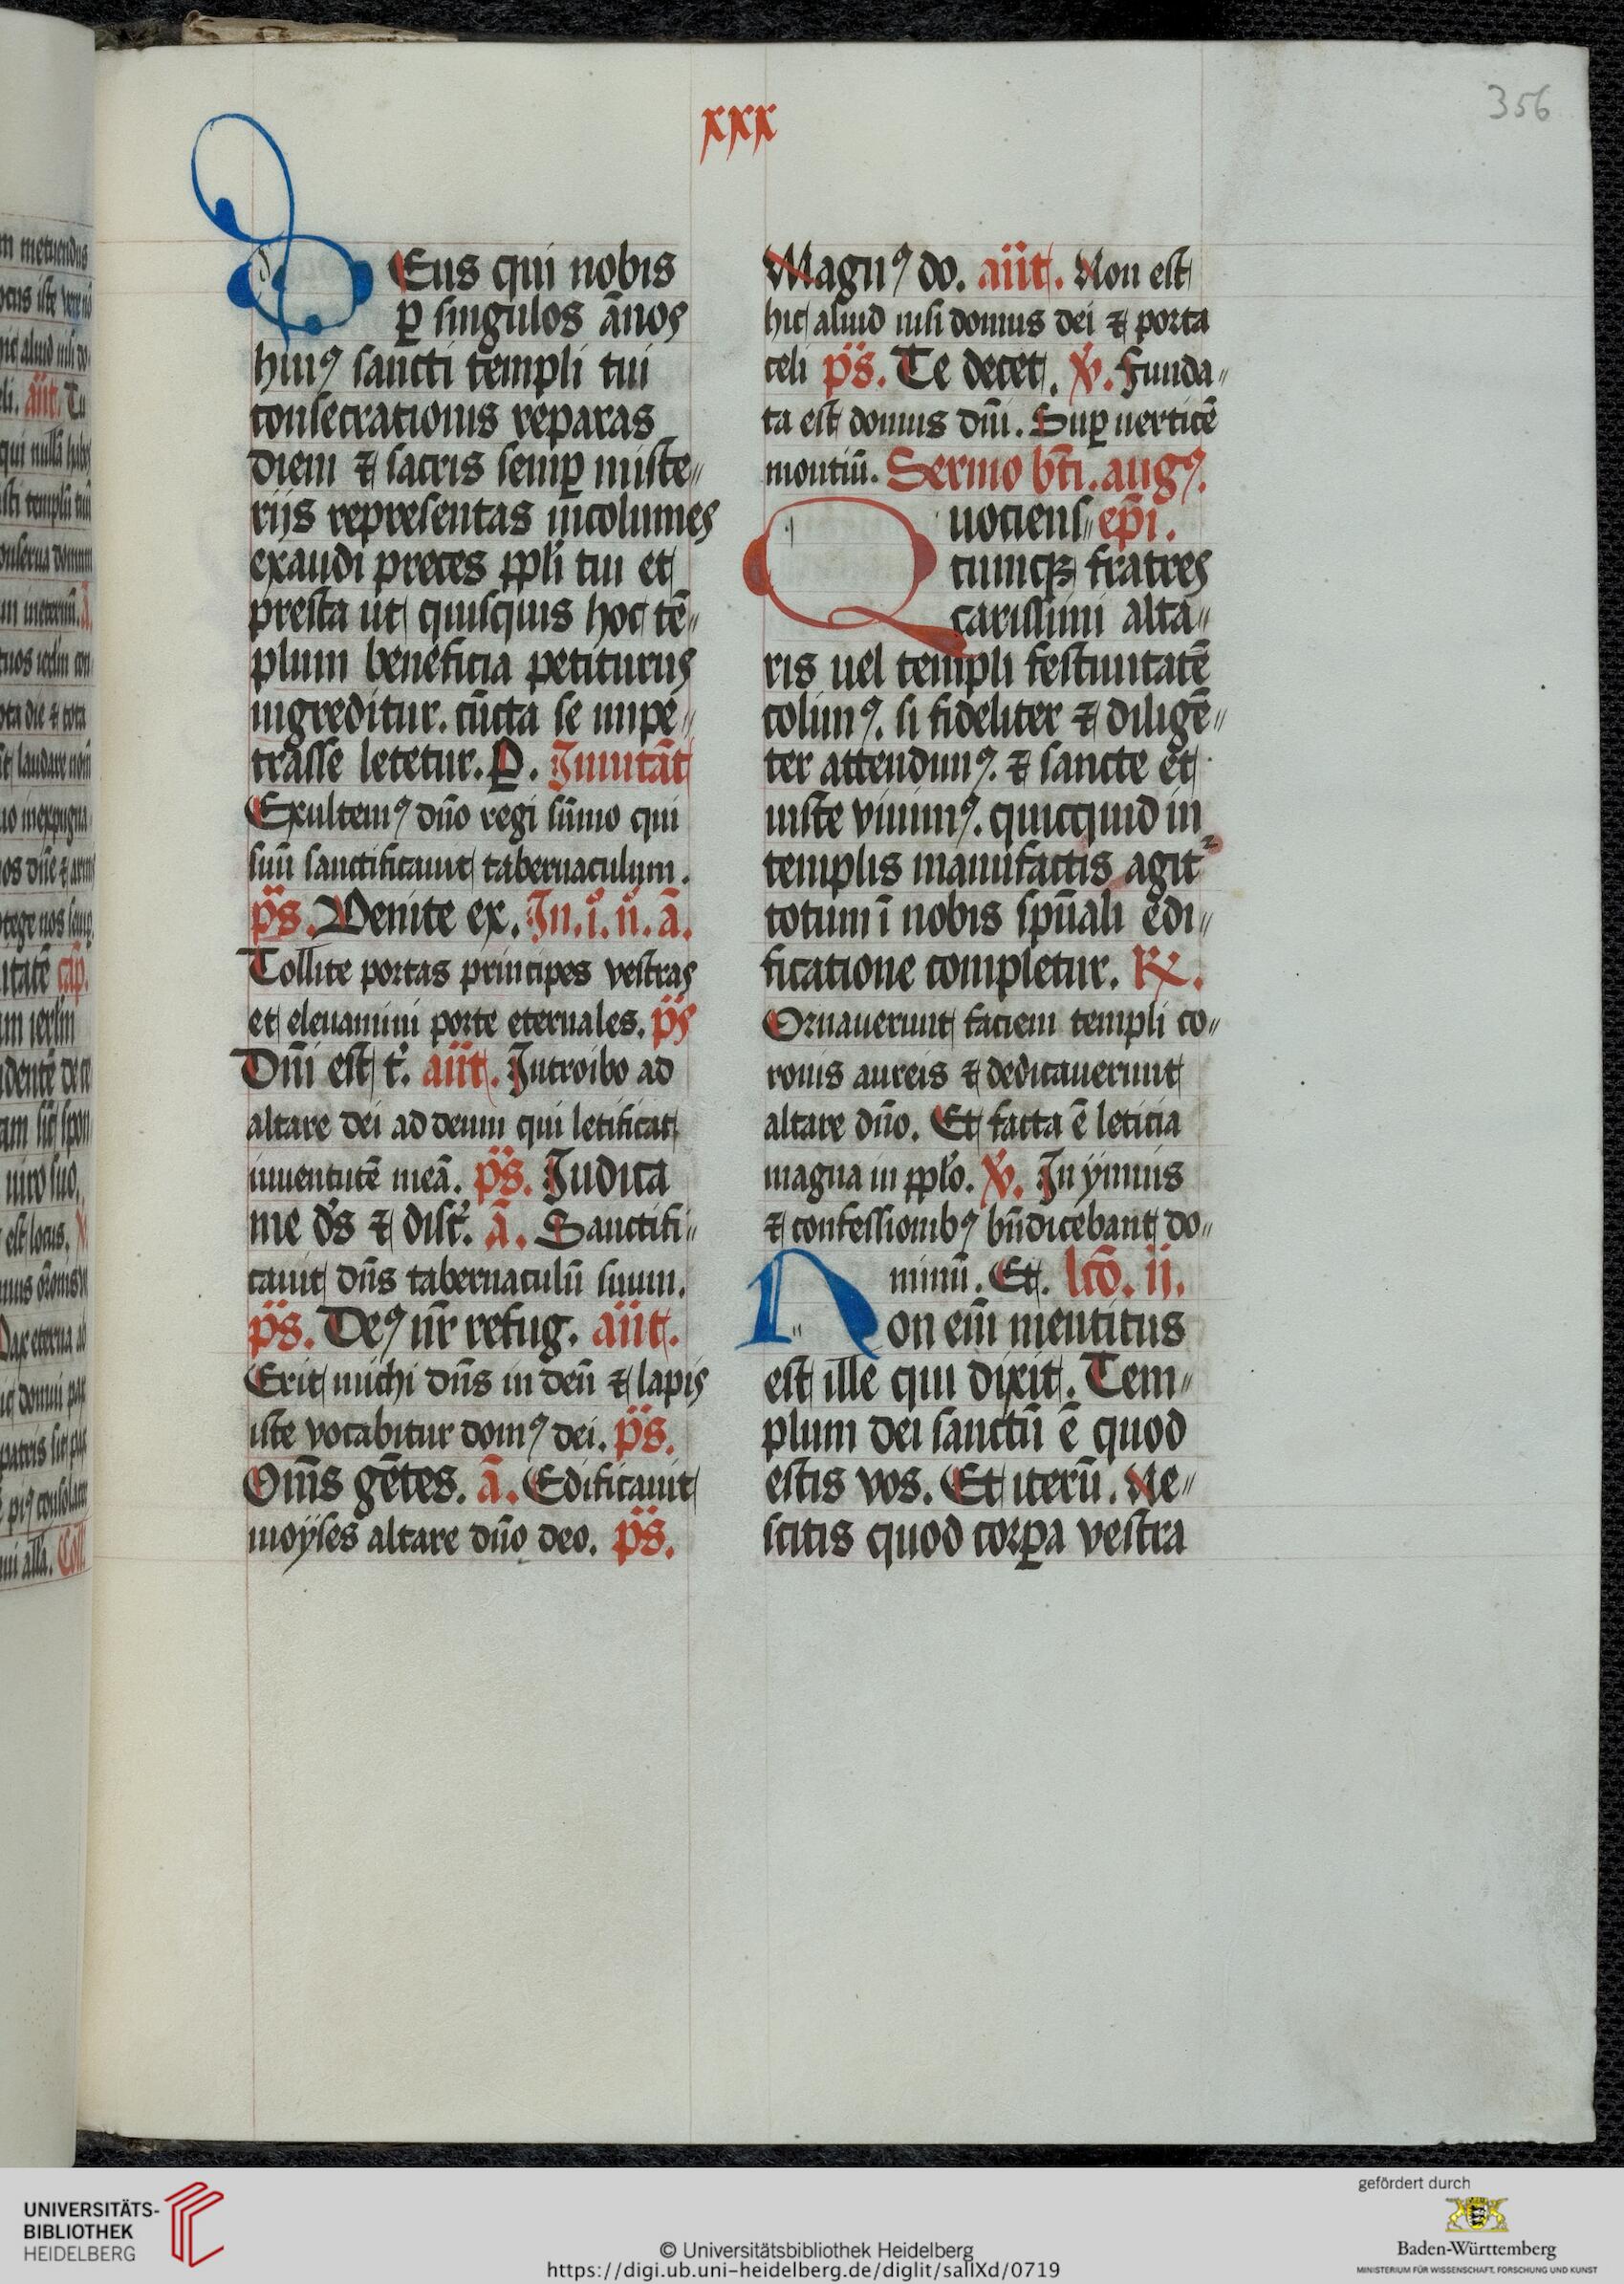 xxx
356
DEus qui nobis
ꝑ singulos ãnos
huiꝰ sancti templi tui
consecrationis reparas
diem ⁊ sacris semꝑ miste〃
riis representas incolumes
exaudi preces ppli tui et
presta ut quisquis hoc tē〃
plum beneficia petiturus
ingreditur. cūcta se impe〃
trasse letetur. P. Inuitāt
Exultemꝰ dño regi sūmo qui
suū sanctificauit tabernaculum.
ps. Venite ex. In. i. n. ā.
Tollite portas principes vestras
et eleuamini porte eternales. ps
Dñi est t. añt. Introibo ad
altare dei ad deum qui letificat
iuuentutē meā. ps. Iudica
me ds ⁊ disc. ā. Sanctifi〃
cauit dñs tabernaculū suum.
ps. Deꝰ nr̄ refug. añt.
Erit michi dñs in deū ⁊ lapis
iste vocabitur domꝰ dei. ps.
Om̄s gētes. ā. Edificauit
moyses altare dño deo. ps.
Magnꝰ do. añt. Non est
hic aliud nisi domus dei ⁊ porta
celi ps. Te decet. ℣. Funda〃
ta est domus dñi. Suꝑ uerticē
montiū. Sermo bt̄i. augꝰ.
Quociens〃 ep̄i.
cunqꝫ fratres
carissimi alta〃
ris uel templi festiuitatē
colimꝰ. si fideliter ⁊ diligē〃
ter attendimꝰ. ⁊ sancte et
iuste viuimꝰ. quicquid in
templis manufactis agit᷑
totum ī nobis spūali edi〃
ficatione completur. ℞.
Ornauerunt faciem templi co〃
ronis aureis ⁊ dedicauerunt
altare dño. Et facta ē leticia
magna in pplo. ℣. In ymnis
⁊ confessionibꝰ bn̄dicebant do〃
minū. Et. lcō. ii.
Non em̄ mentitus
est ille qui dixit. Tem〃
plum dei sanctū ē quod
estis vos. Et iterū. Ne〃
scitis quod corꝑa vestra
UNIVERSITÄTS-
BIBLIOTHEK
HEIDELBERG
© Universitätsbibliothek Heidelberg
https://digi.ub.uni-heidelberg.de/diglit/salIXd/0719
gefördert durch
Baden-Württemberg
MINISTERIUM FÜR WISSENSCHAFT, FORSCHUNG UND KUNST